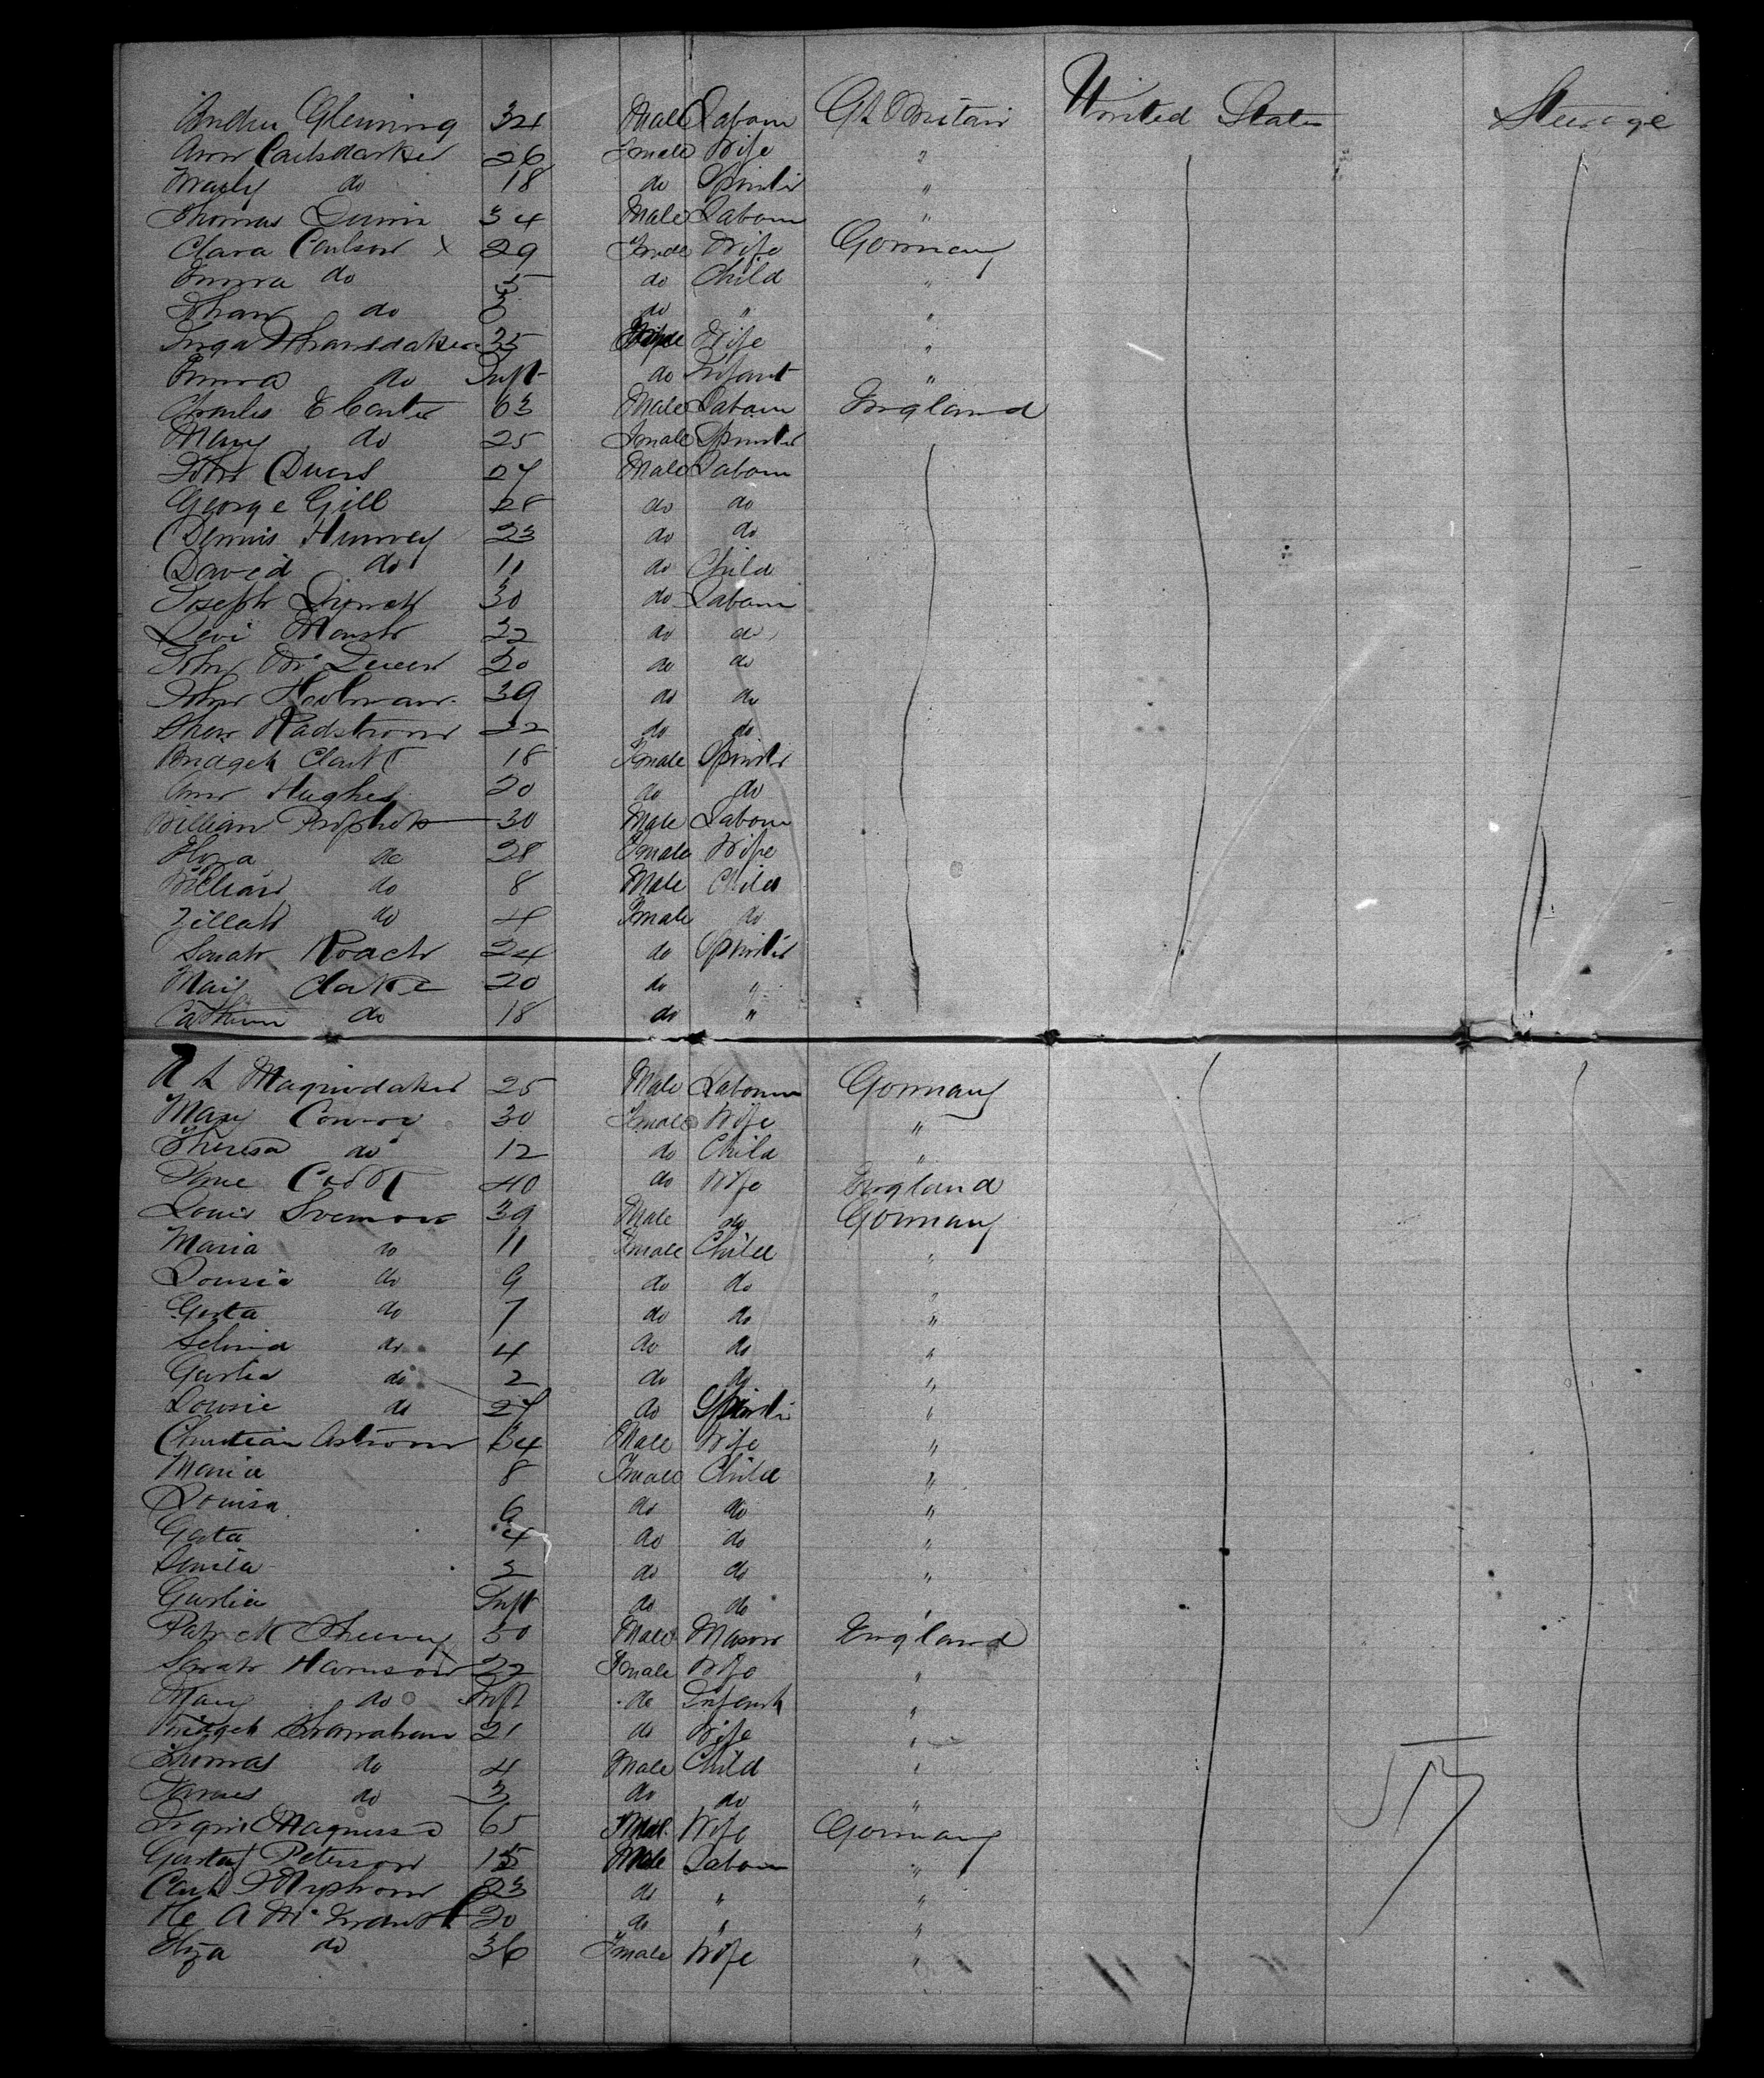 Glenning 34 Male Labour Gt Britain United States Steerage
Ann Carlsdarker 26 Female Wife "
do 18 do Spinster "
Thomas Dunn 34 Male Labour "
Clara Carlson x 29 Female Wife Germany
Emma do 5 do Child "
Johan do 3 do " "
Inga 25 Wife "
Emma do Inft do Infant "
Charles E Carter 63 Male Labour England
Mary do 25 Female Spinster
John Owens 27 Male Labour
George Gill 28 do do
Dennis Hurvey 23 do do
David do 11 do Child
Joseph 30 do Labour
Levi 22 do do
John McQueen 20 do do
John Holman 39 do do
Radstrom 22 do do
Bridget Clark 18 Female Spinster
Ann Hughes 20 do do
William Prophet 30 Male Labour
Flora do 28 Female Wife
William do 8 Male Child
Zillah do 4 Female do
Sarah Roach 24 do Spinster
Mary Clarke 20 do "
Catherine do 18 do "
Magnusdaker 25 Male Labour Germany
Mary Conroy 30 Female Wife "
Theresa do 12 do Child "
Jane 40 do Wife England
Louis Svenson 39 Male do Germany
Maria do 11 Female Child "
Lousia do 9 do do "
Gusta do 7 do do "
Selina do 4 do do "
Gustia do 2 do do "
Lousie do 27 do Spinster "
Christian Astrom 34 Male Wife "
Maria 8 Female Child "
Louisa 6 do do "
Gusta 4 do do "
2 do do "
Gustia Inft do do "
Patrick 50 Male Mason England
Sarah Harrison 22 Female Wife "
Mary do Inft do Infant "
Bridget 21 do Wife "
Thomas do 4 Male Child "
James do 3 do do "
65 Wife Germany
Gustaf Peterson 15 Male Labour "
Carl 23 do " "
20 do " "
Eliza do 36 Female Wife "
57